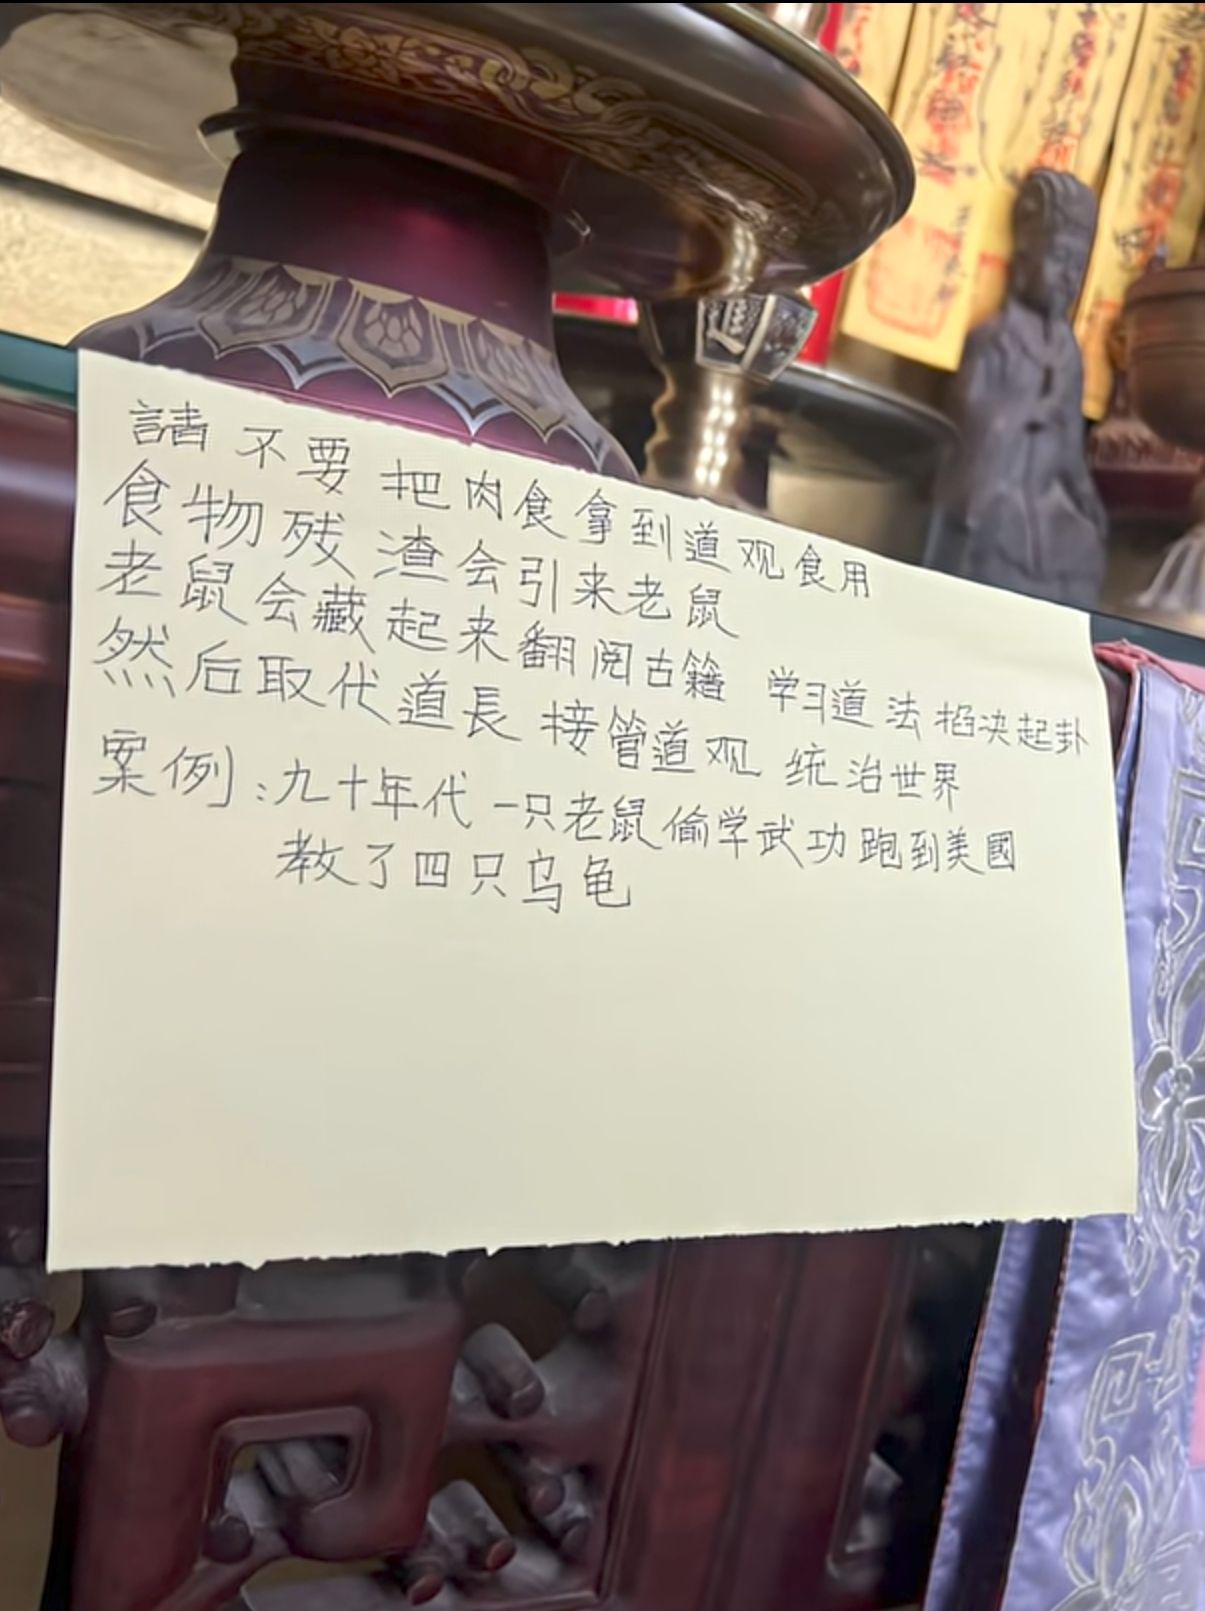 請不要把肉食拿到道观食用
食物残渣会引来老鼠
老鼠会藏起来翻阅古籍 学习道法掐决起卦
然后取代道長接管道观 统治世界
案例：九十年代一只老鼠偷学武功跑到美國
教了四只乌龟